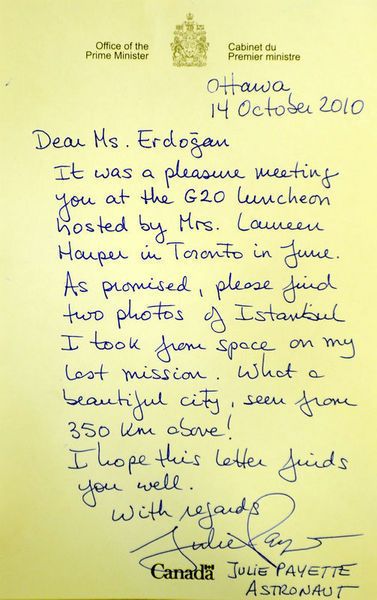 Office of the Prime Minister
Cabinet du Premier ministre
Ottawa
14 October 2010
Dear Ms. Erdoğan
It was a pleasure meeting
you at the G20 luncheon
hosted by Mrs. Laureen
Harper in Toronto in June.
As promised, please find
two photos of Istanbul
I took from space on my
last mission. What a
beautiful city, seen from
350 km above!
I hope this letter finds
you well.
With regards
Julie Payette
Canada
JULIE PAYETTE
ASTRONAUT